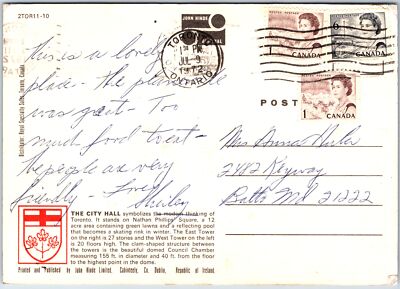 2TDR11-10
JOHN HINDE
TORONTO
1 PM
JUL-9
1972
ONTARIO
1
CANADA
6
CANADA
1
CANADA
POST
this is a lovely
place - the
was great - Too
much food to eat -
people are very
friendly - Love
Shirley
Miss Anna
2482 Keyway
Balto Md 21222
THE CITY HALL symbolizes the modern thinking of
Toronto. It stands on Nathan Phillips Square, a 12
acre area containing green lawns and a reflecting pool
that becomes a skating rink in winter. The East Tower
on the right is 27 stories and the West Tower on the left
is 20 floors high. The clam-shaped structure between
the towers is the beautiful domed Council Chamber
measuring 155 ft. in diameter and 40 ft. from the floor
to the highest point in the dome.
Printed and Published by John Hinde Limited, Cabinteely, Co. Dublin, Republic of Ireland
Distributor: Royal Specialty Sales, Toronto, Canada